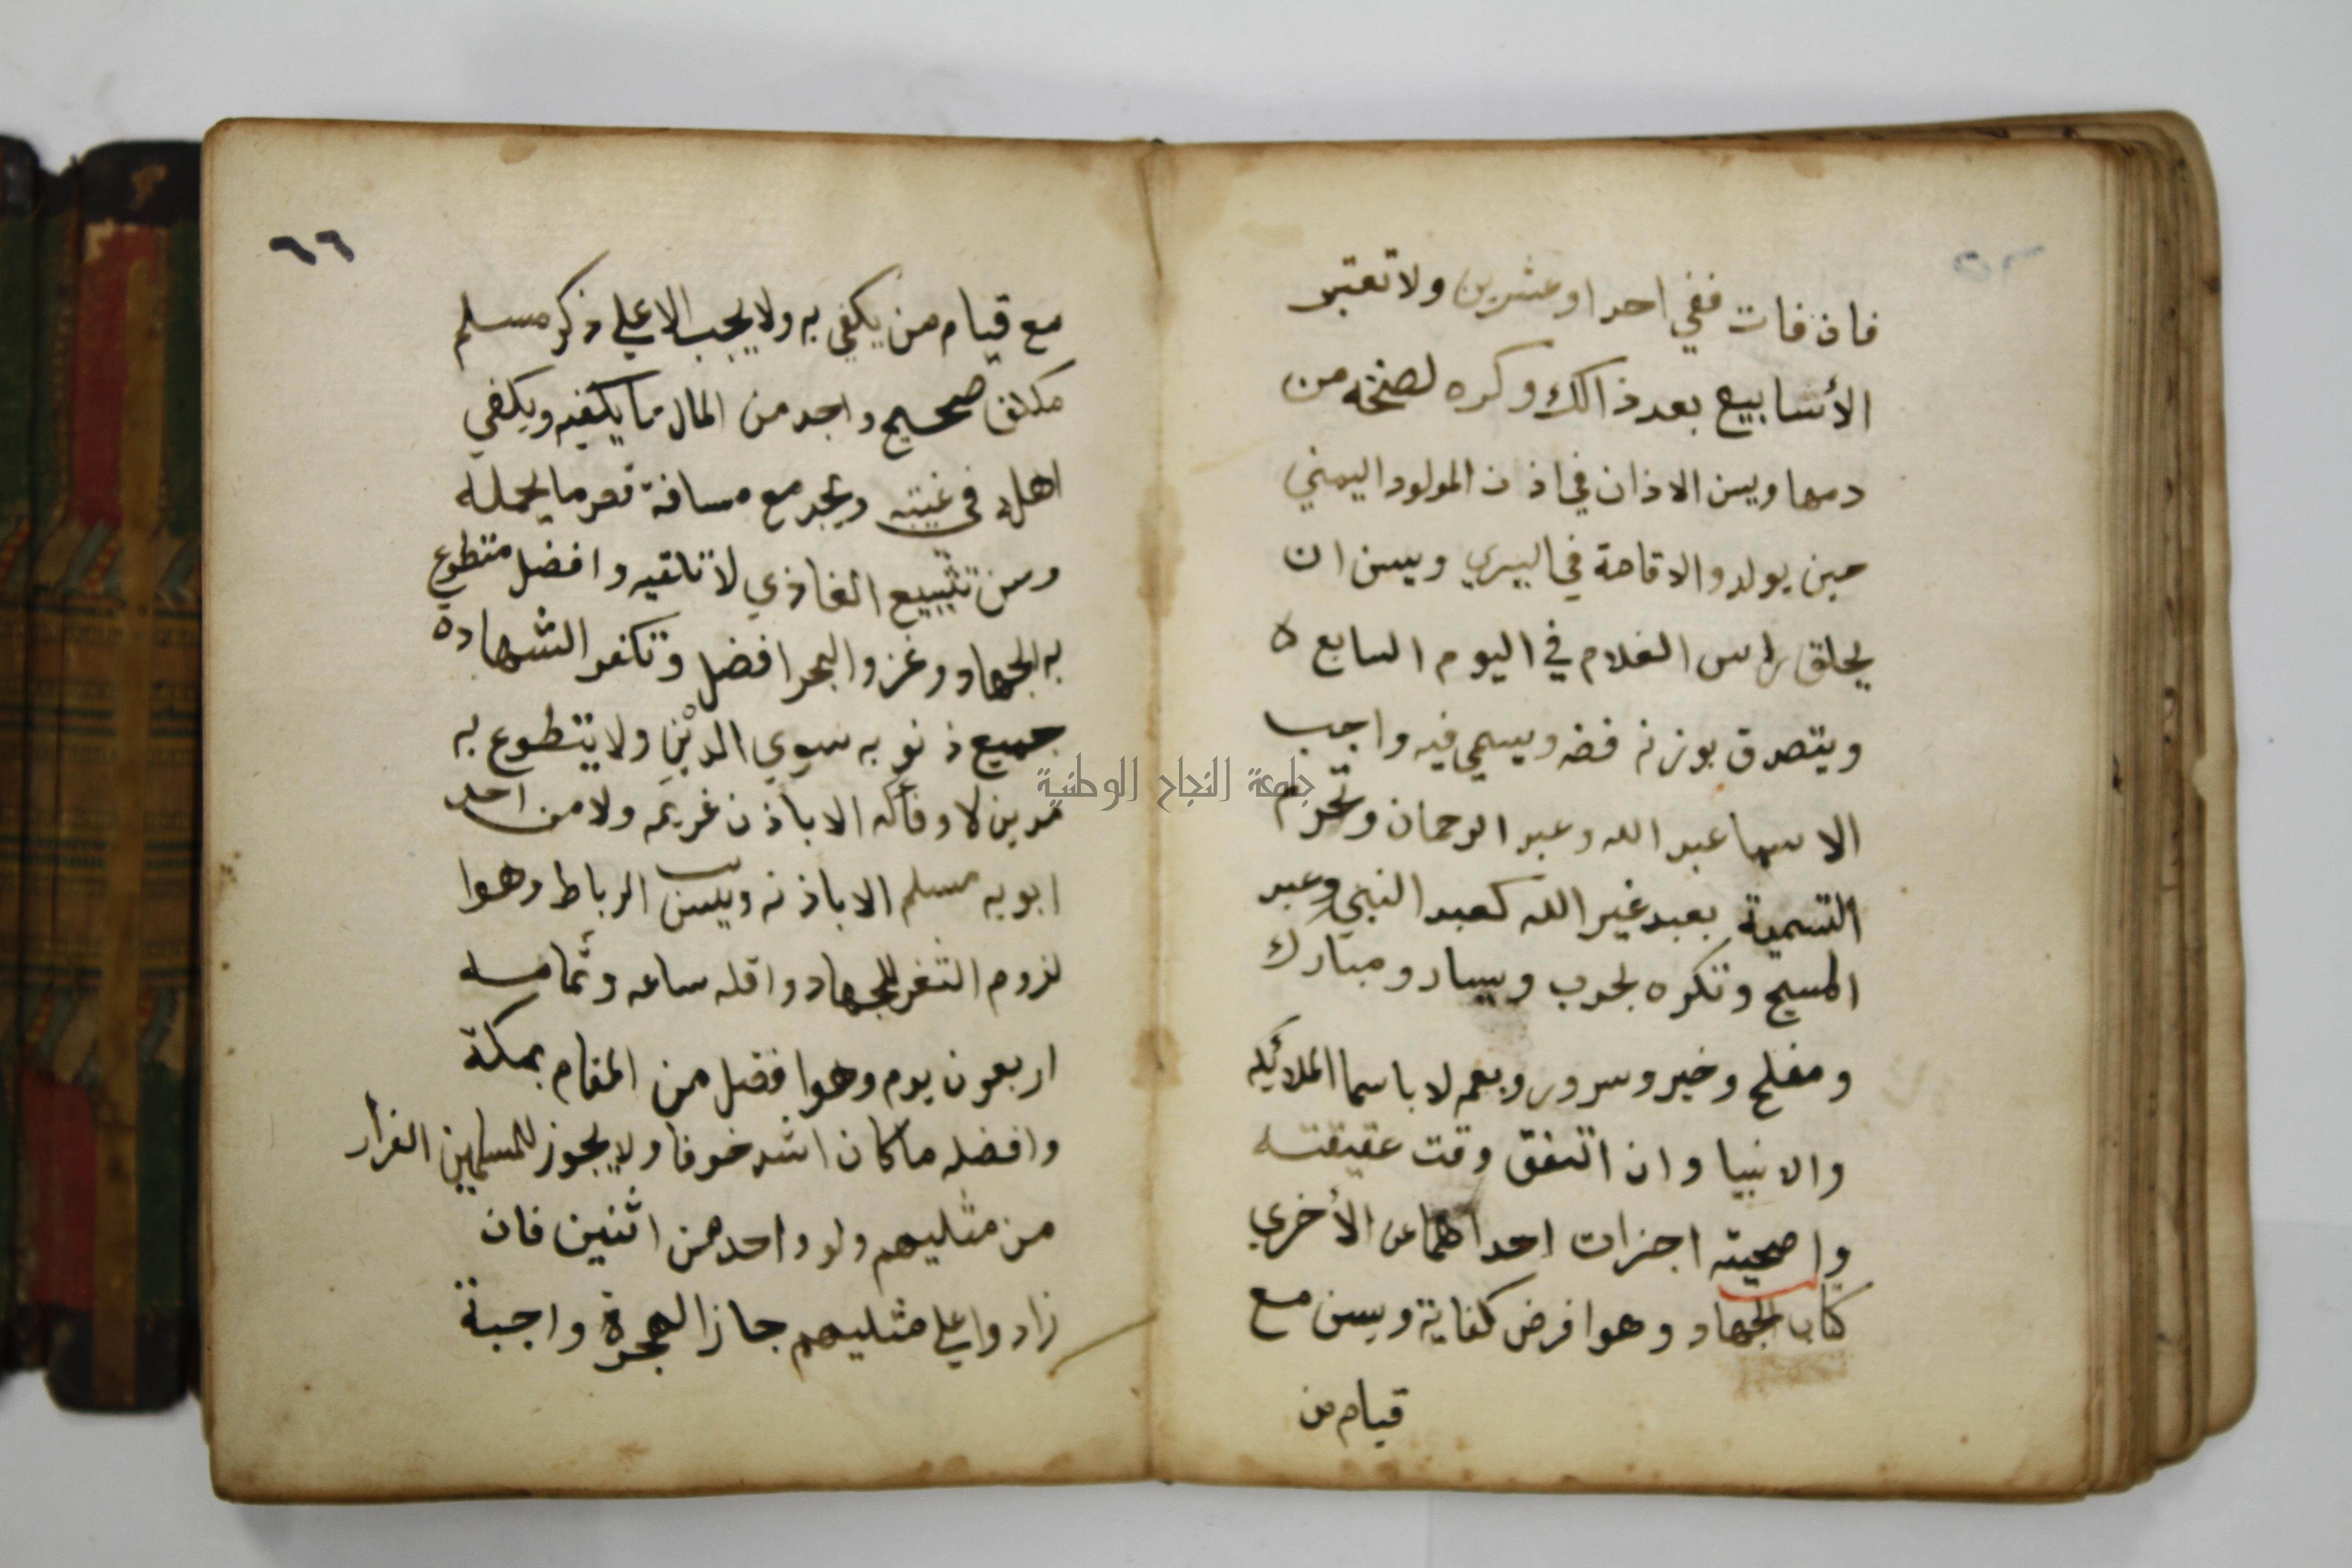 فان فات ففي احد او عشرين ولا تعتبر
الأسابيع بعد ذالك وكره لطخه من
دمها ويسن الاذان في اذن المولود اليمني
حين يولد والاقامة في اليسري ويسن ان
يحلق راس الغلام في اليوم السابع ه
ويتصدق بوزنه فضه ويسمي فيه واحب
الاسما عبد الله وعبد الرحمان وتحرم
التسمية بعبد غير الله كعبد النبي وعبد
المسيح وتكره بحرب ويسار ومبارك
ومفلح وخير وسرور وبعم لا باسما الملائكه
والانبيا وان اتفق وقت عقيقته
واضحيته اجزات احداهما عن الأخري
كتاب الجهاد وهوا فرض كفاية ويسن مع
قيام من
٦٦
مع قيام من يكفي به ولا يجب الا علي ذكر مسلم
مكلف صحيح واجد من المال ما يكفيه ويكفي
اهله في غيبته ويجد مع مسافة قصر ما يحمله
وسن تشييع الغازي لا تلقيه وافضل متطوع
به الجهاد وغزو البحر افضل وتكفر الشهادة
جميع ذنوبه سوي الدين ولا يتطوع به
مدين لا وفاله الا باذن غريمه ولا من احد
ابويه مسلم الا باذنه ويسن الرباط وهوا
لزوم الثغر للجهاد واقله ساعه وتمامه
اربعون يوم وهوا فضل من المقام بمكة
وافضله ما كان اشد خوفا ولا يجوز للمسلمين الفرار
من مثليهم ولو واحد من اثنين فان
زادوا علي مثليهم جاز الهجرة واجبة
جامعة النجاح الوطنية